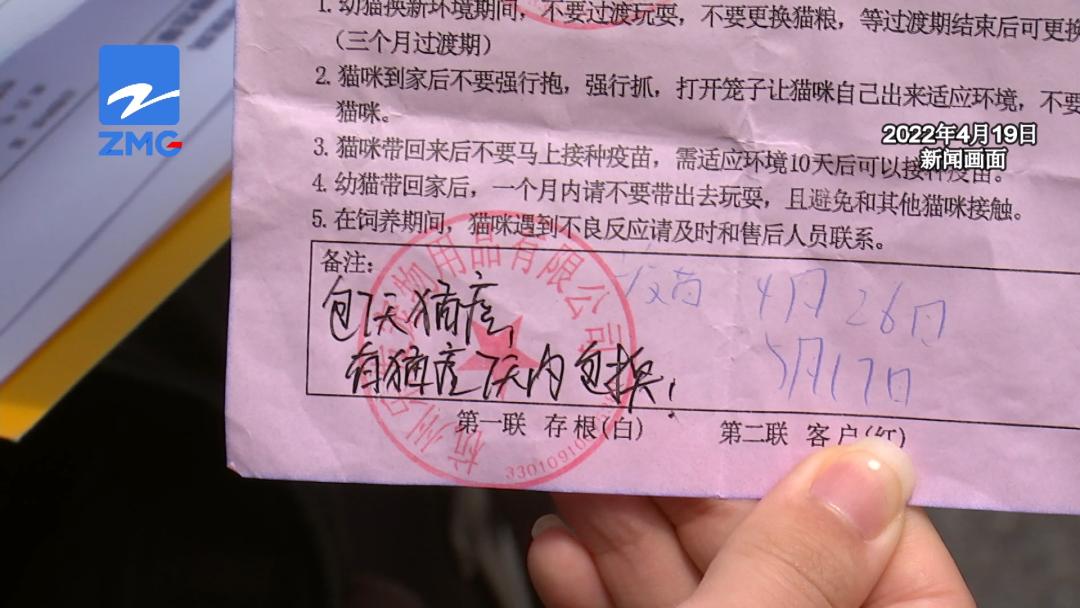 1. 幼猫换新环境期间，不要过渡玩耍，不要更换猫粮，等过渡期结束后可更换
（三个月过渡期）
2. 猫咪到家后不要强行抱，强行抓，打开笼子让猫咪自己出来适应环境，不要
猫咪。
3. 猫咪带回来后不要马上接种疫苗，需适应环境10天后可以接种疫苗。
4. 幼猫带回家后，一个月内请不要带出去玩耍，且避免和其他猫咪接触。
5. 在饲养期间，猫咪遇到不良反应请及时和售后人员联系。
备注：
包7天猫瘟，
有猫瘟7天内包换！
疫苗 4月26日
5月17日
杭州 物用品有限公司
3301091
第一联 存根(白) 第二联 客户(红)
ZMG
2022年4月19日
新闻画面